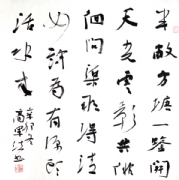 半畝方塘一鑒開
天光雲影共徘
徊問渠那得清
如許為有源頭
活水來